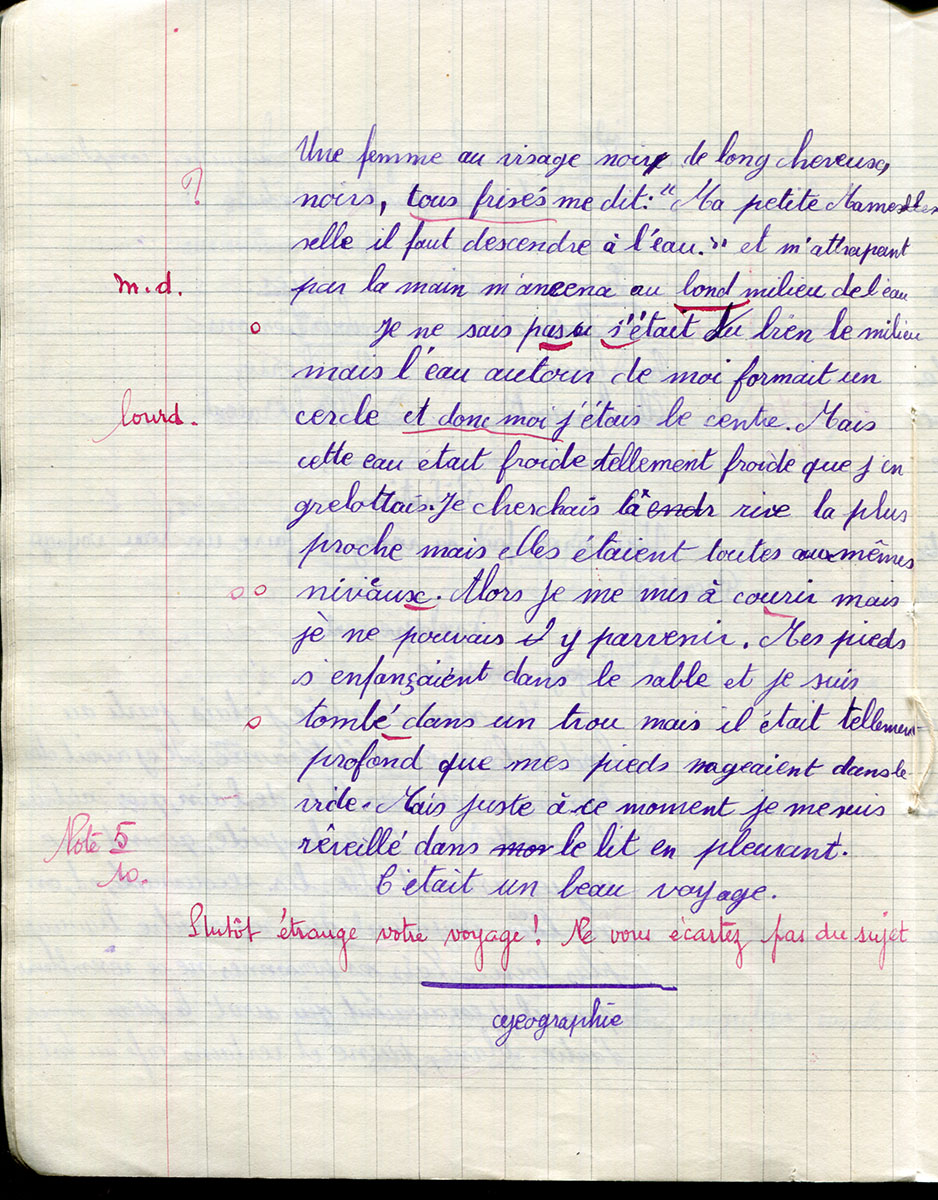 Une femme au visage noir de long cheveux,
? noirs, tous frisés me dit: "Ma petite Mamesel
selle il faut descendre à l'eau." et m'attrapant
m.d. par la main m'amena au lond milieu de l'eau
Je ne sais pas si s'était du bien le milieu
mais l'eau autour de moi formait un
lourd. cercle et donc moi j'étais le centre. Mais
cette eau était froide tellement froide que j'en
grelottais. Je cherchais la rive la plus
proche mais elles étaient toutes aux mêmes
niveaux. Alors je me mis à courir mais
je ne pouvais y parvenir. Mes pieds
s'enfonçaient dans le sable et je suis
tombé dans un trou mais il était tellement
profond que mes pieds nageaient dans le
vide. Mais juste à ce moment je me suis
réveillé dans mon le lit en pleurant.
Note 5/10.
C'était un beau voyage.
Plutôt étrange votre voyage! Ne vous écartez pas du sujet
géographie